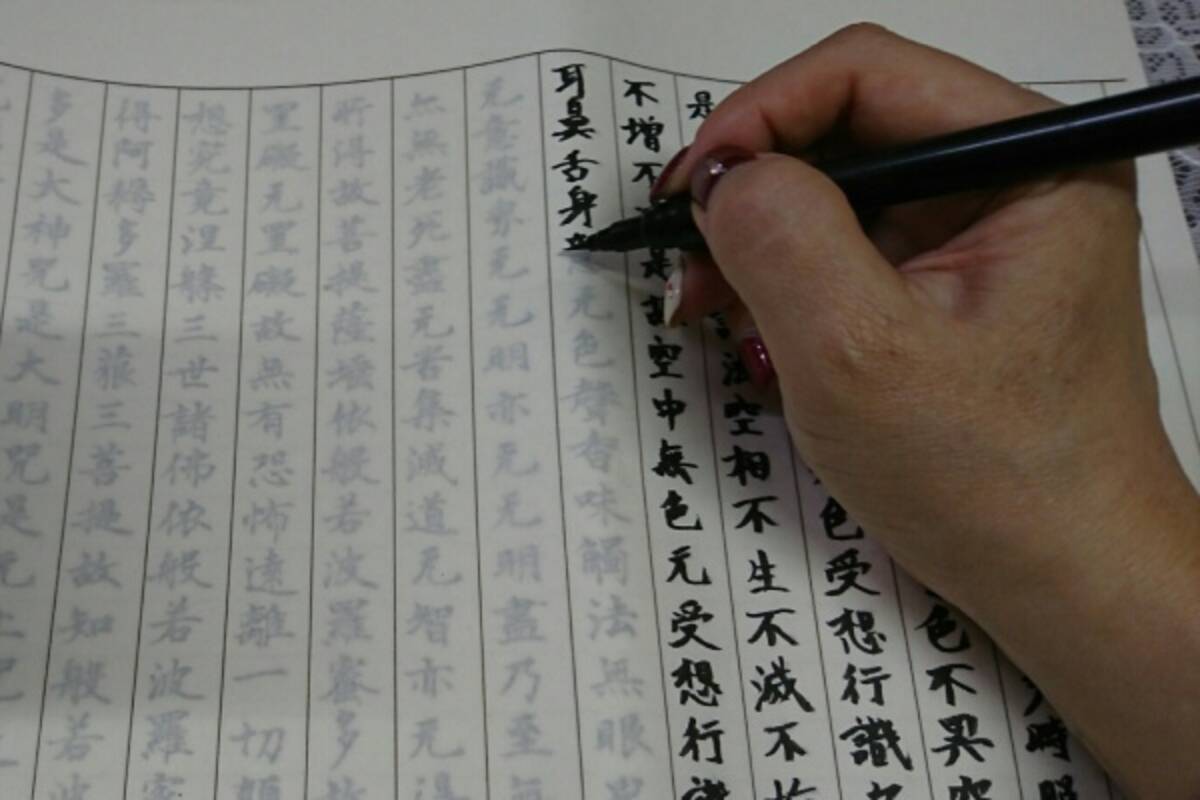 時照
色不異空
色受想行識
是諸法空相不生不滅不垢
不增不是故空中無色无受想行識
耳鼻舌身意无色聲香味觸法無眼界
无意識界无无明亦无无明盡乃至無
無無老死盡无苦集滅道无智亦无得
所得故菩提薩埵依般若波羅蜜多故
罣礙无罣礙故無有恐怖遠離一切顛
想究竟涅槃三世諸佛依般若波羅蜜
得阿耨多羅三藐三菩提故知般若波
多是大神咒是大明咒是无上咒